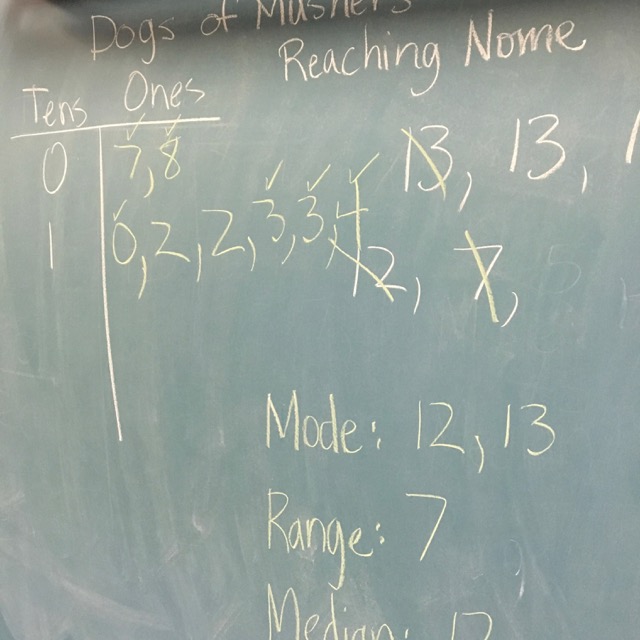 Dogs of Mushers
Reaching Nome
Tens Ones
0 7, 8
1 0, 2, 2, 3, 3, 4
13, 13,
12, 7,
Mode: 12, 13
Range: 7
Median: 12